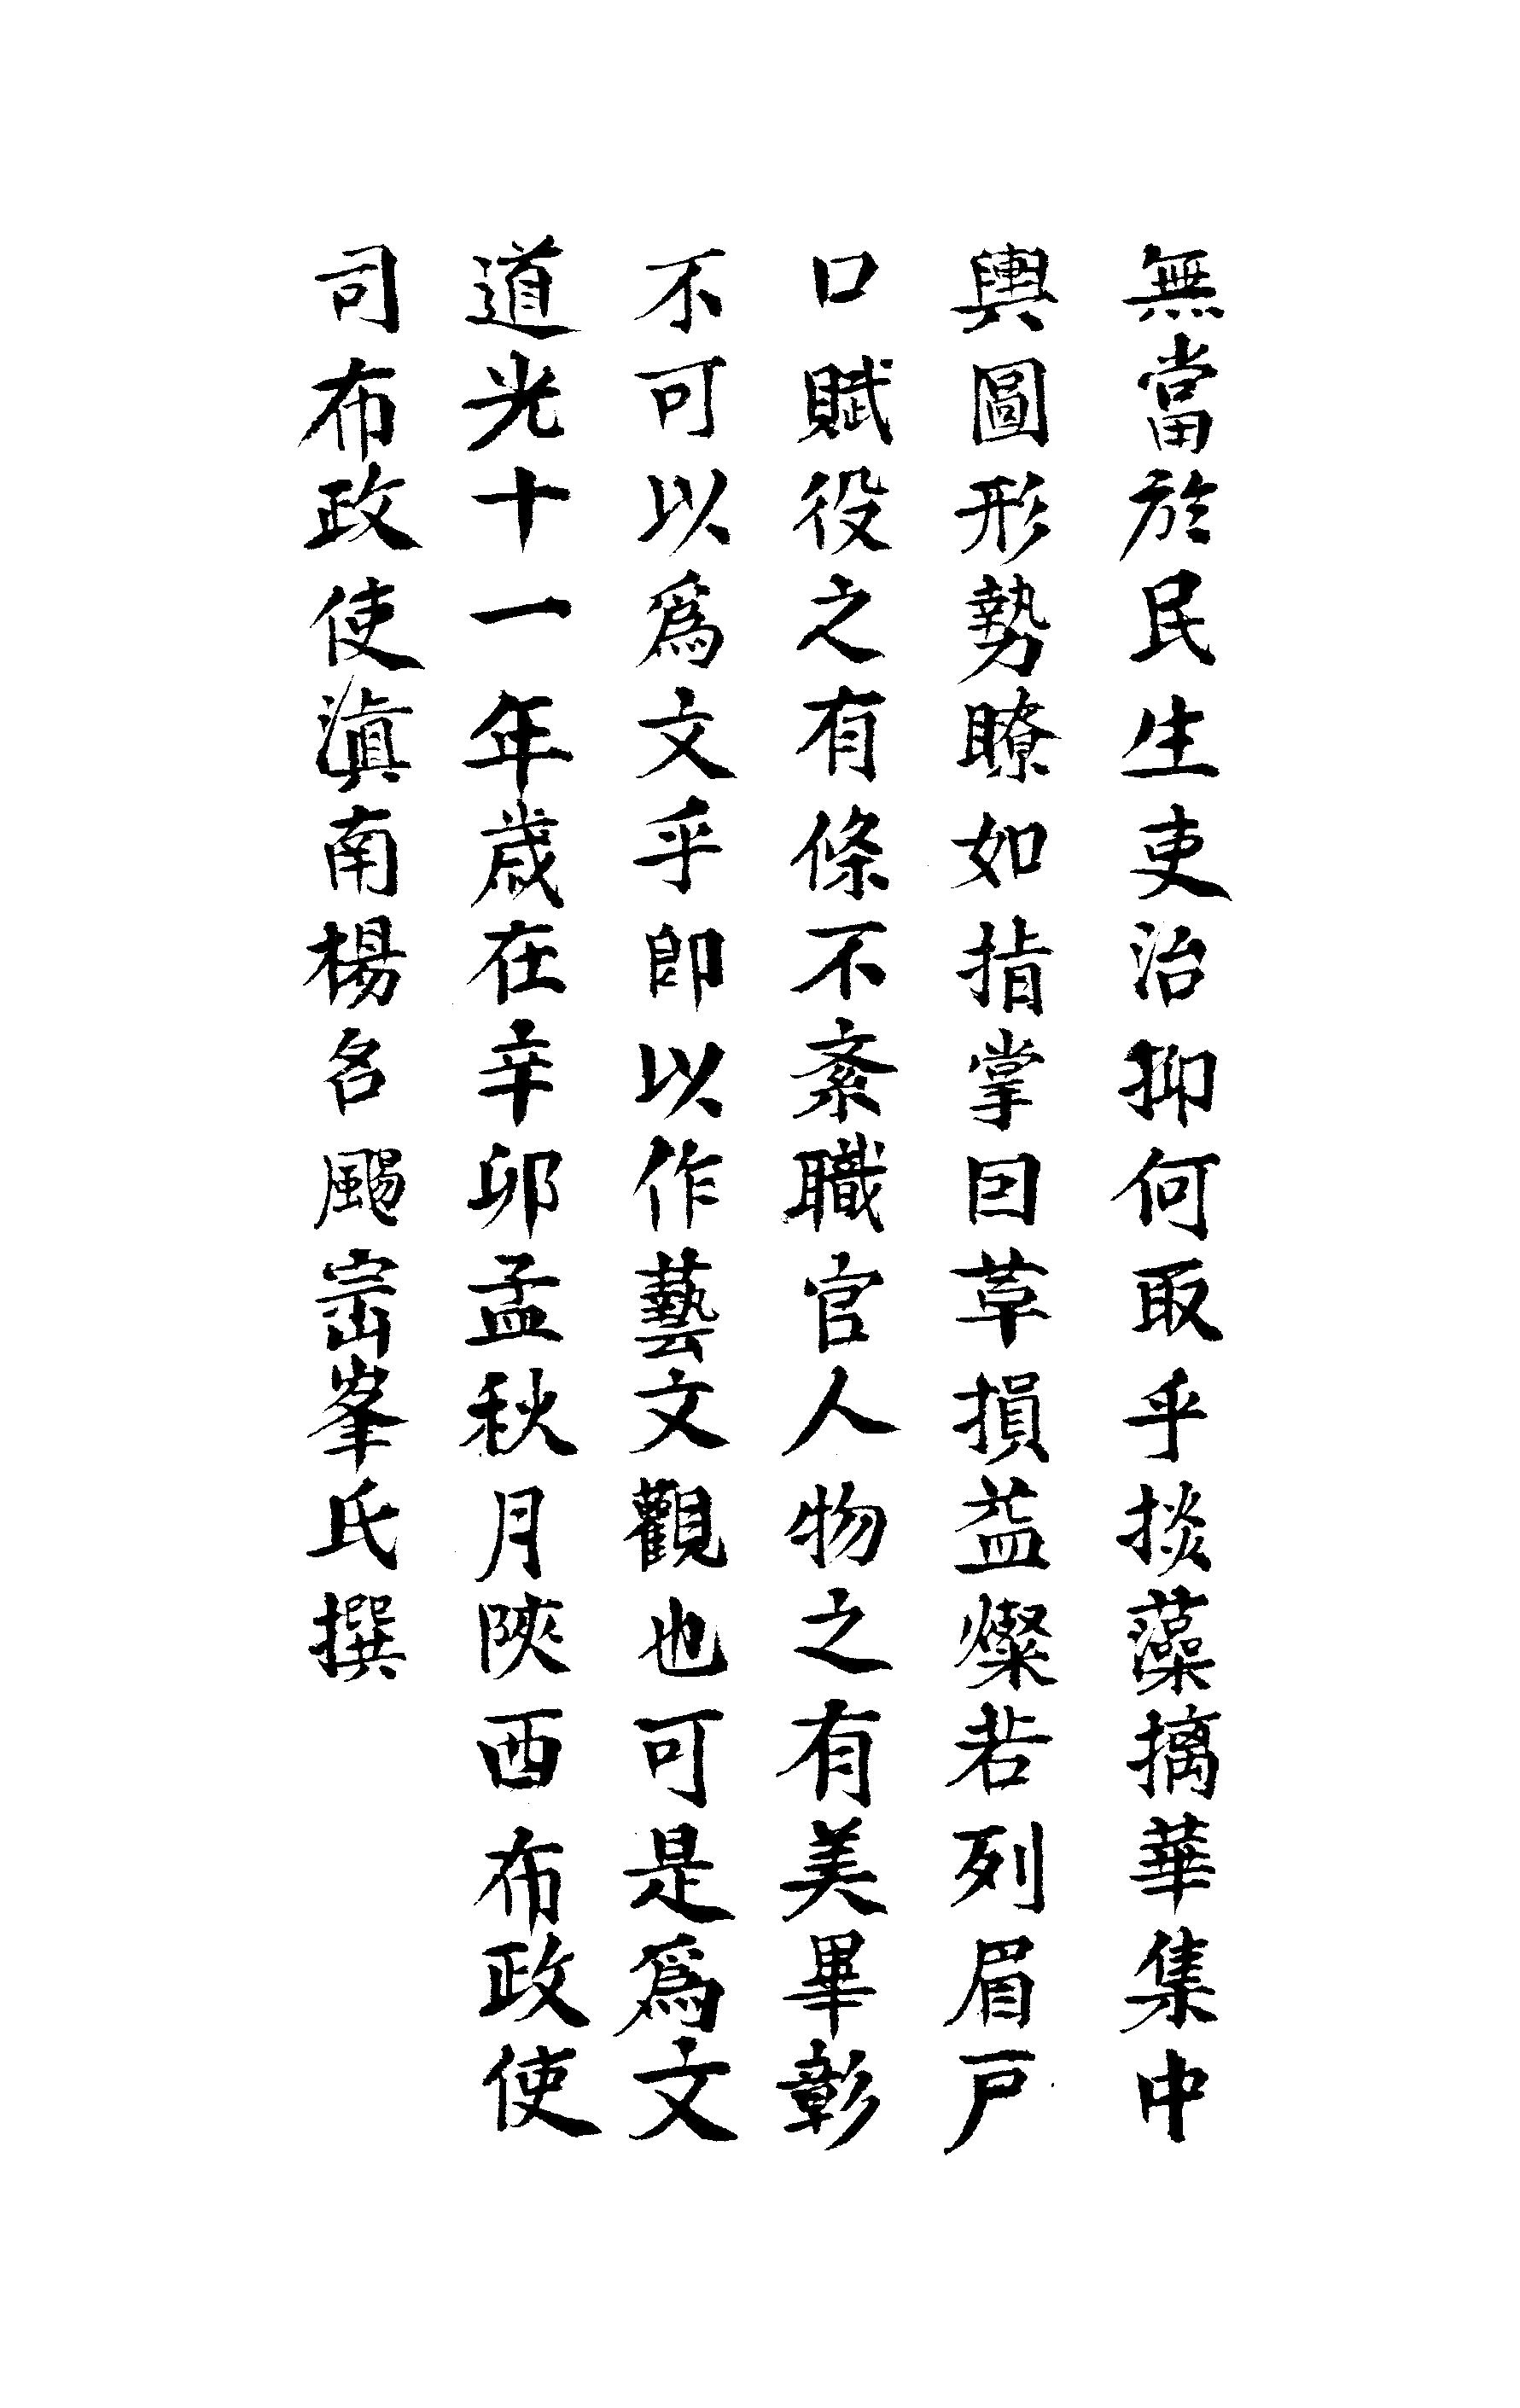 無當於民生吏治抑何取乎掞藻摛華集中
輿圖形勢瞭如指掌因革損益燦若列眉戸
口賦役之有條不紊職官人物之有美畢彰
不可以爲文乎即以作藝文觀也可是爲文
道光十一年歲在辛卯孟秋月陝西布政使
司布政使滇南楊名颺崇峯氏撰